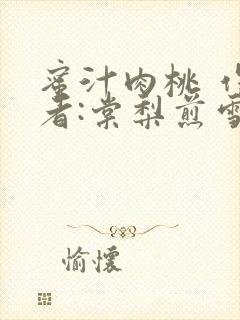 蜜汁肉桃 作
者:棠梨煎雪
愉懷